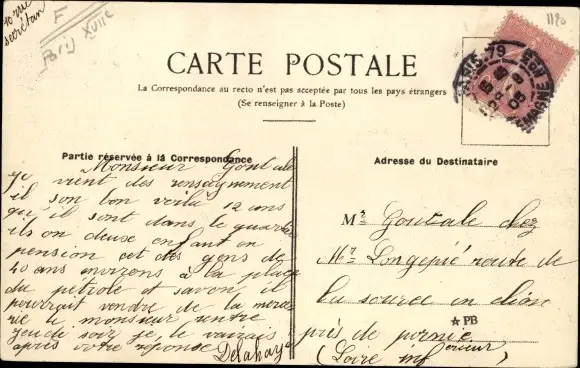 10 rue
secrétan
F
Paris XVIIe
1190
CARTE POSTALE
La Correspondance au recto n'est pas acceptée par tous les pays étrangers
(Se renseigner à la Poste)
PARIS. 79
Partie réservée à la Correspondance
Monsieur
je vient des rensaignement
il son bon voila 12 ans
qu'il sont dans le quartier
ils on deuse enfant en
pension cet des gens de
40 ans environs à la place
du pétrole et savon il
pourrait vendre de la
le monsieur rentre
jeude soir je le vairais
après votre reponse Delahaye
Adresse du Destinataire
Mr Goutale chez
Mr Longepié route de
la source en
près de pornic
(Loire inférieur)
★PB